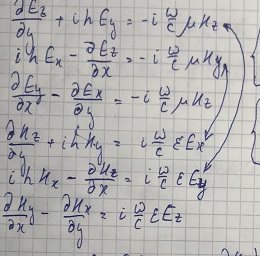 ∂Ez/∂y + ihEy = -i ω/c μHz
ihEx - ∂Ez/∂x = -i ω/c μHy
∂Ey/∂x - ∂Ex/∂y = -i ω/c μHz
∂Hz/∂y + ihHy = i ω/c εEx
ihHx - ∂Hz/∂x = i ω/c εEy
∂Hy/∂x - ∂Hx/∂y = i ω/c εEz